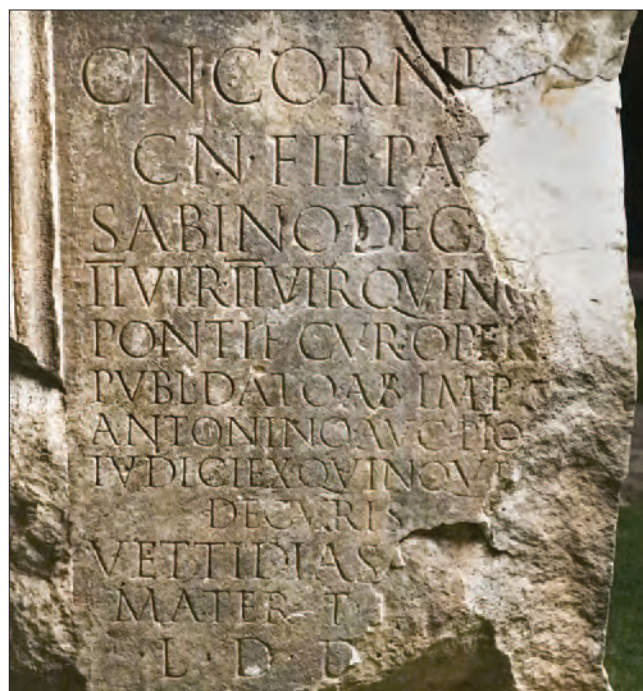 CN CORNE
CN · FIL PA
SABINO DEC
IIVIR IIVIR QVIN
PONTIF CVR OPER
PVBL DATO AB IMP
ANTONINO AVG PIO
IVDICI EX QVINQVE
DECVRIS
VETTIDIA S
MATER T
L · D · D